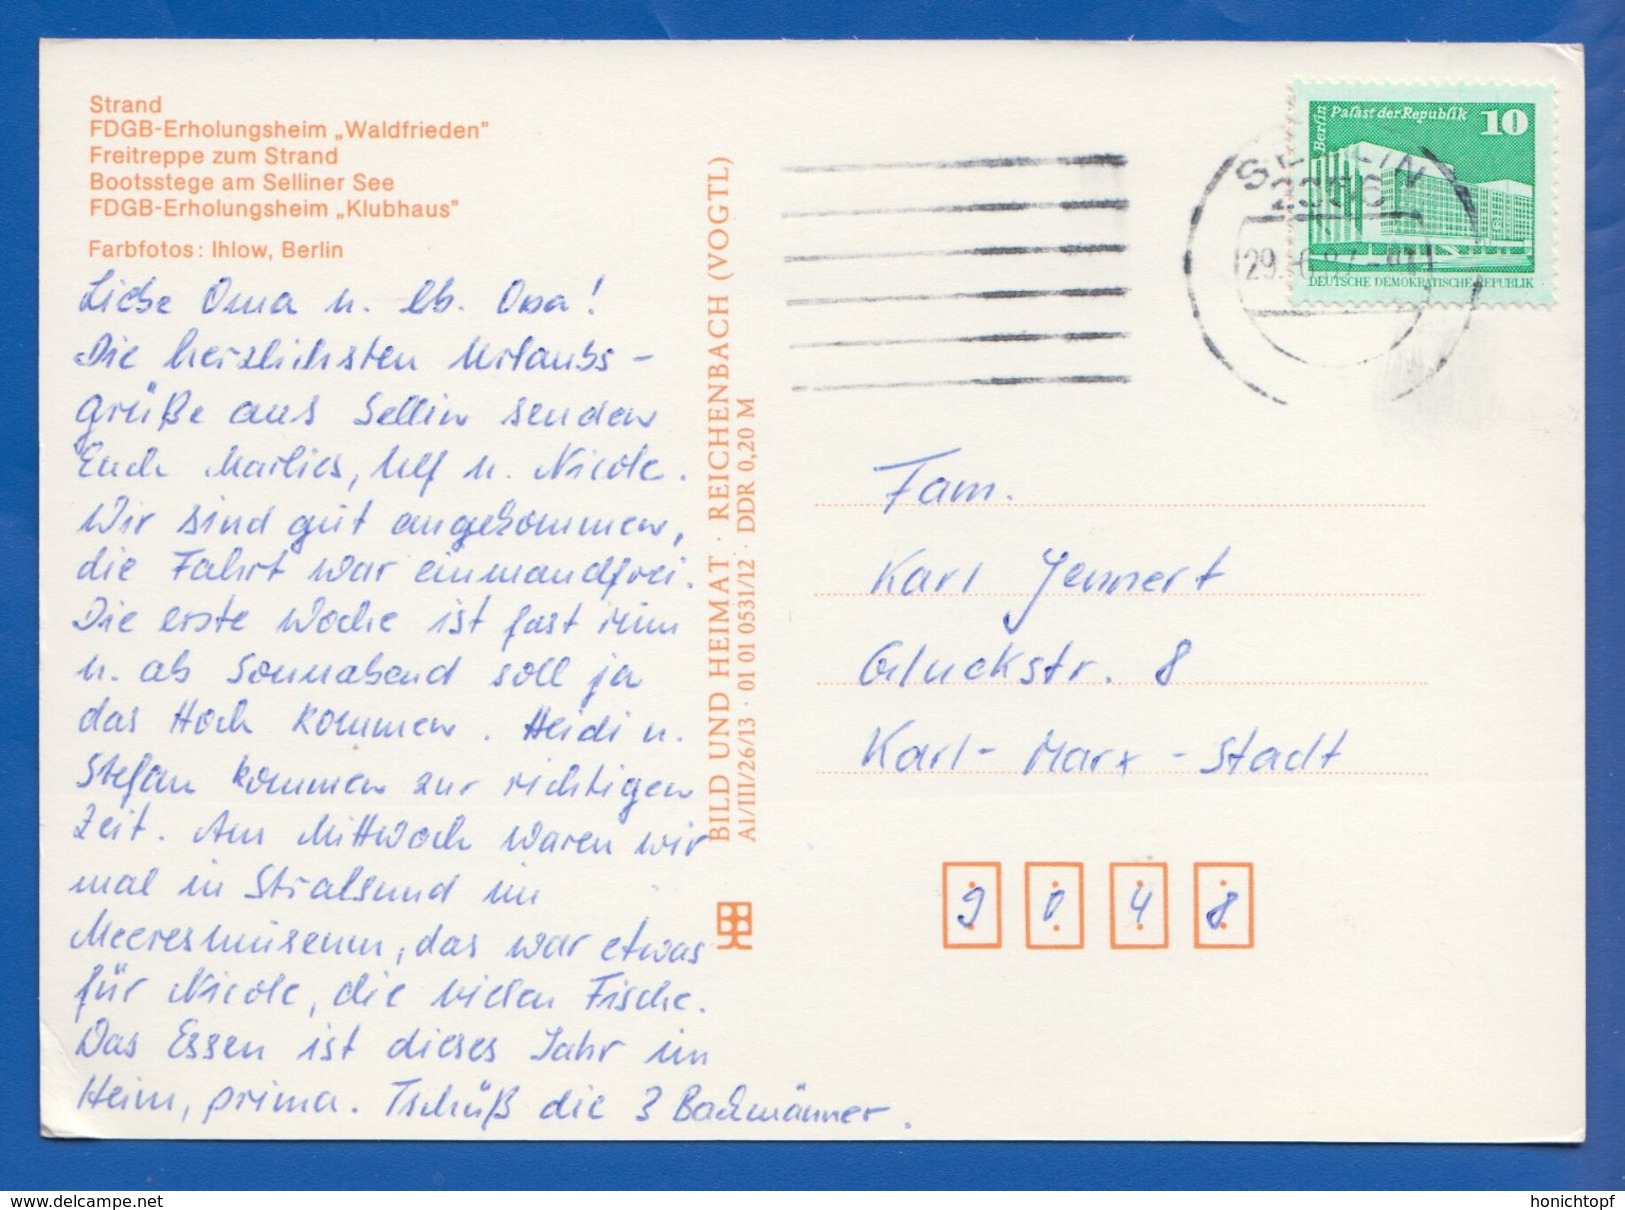 Strand
FDGB-Erholungsheim „Waldfrieden"
Freitreppe zum Strand
Bootsstege am Selliner See
FDGB-Erholungsheim „Klubhaus"
Farbfotos: Ihlow, Berlin
Liebe Oma u. lb. Opa!
Die herzlichsten Urlaubs-
grüße aus Sellin senden
Euch Marlies, Ulf u. Nicole.
Wir sind gut angekommen,
die Fahrt war einwandfrei.
Die erste Woche ist fast rum
u. ab Sonnabend soll ja
das Hoch kommen. Heidi u.
Stefan kommen zur richtigen
Zeit. Am Mittwoch waren wir
mal in Stralsund im
Meeresmuseum, das war etwas
für Nicole, die vielen Fische.
Das Essen ist dieses Jahr im
Heim, prima. Tschüß die 3 Bachmänner.
BILD UND HEIMAT · REICHENBACH (VOGTL)
A1/III/26/13 · 01 01 0531/12 · DDR 0,20 M
Berlin Palast der Republik 10
DEUTSCHE DEMOKRATISCHE REPUBLIK
SELLIN
Fam.
Karl Jennert
Gluckstr. 8
Karl-Marx-Stadt
9 0 4 8
www.delcampe.net
honichtopf